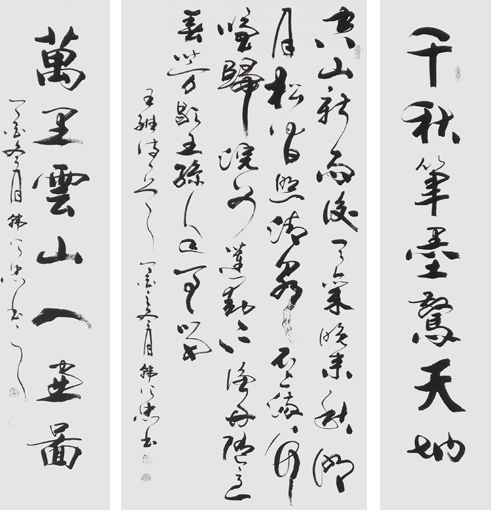 千秋筆墨驚天地
空山新雨後天氣晚來秋明
月松間照清泉石上流竹
喧歸浣女蓮動下漁舟隨意
春芳歇王孫自可留
王維詩
萬里雲山入畫圖